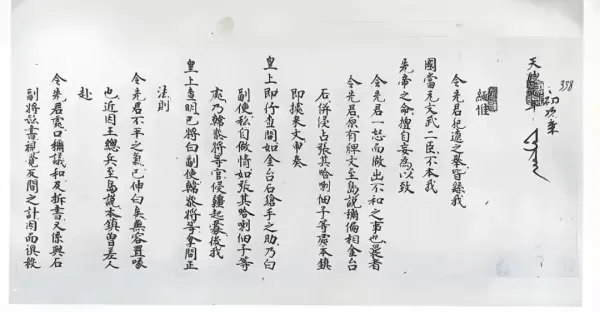 338
初次來
天聰
細惟
令先君犯遼之舉皆緣我
國當先文武二臣不本我
先帝之命擅自妄為以致
令先君一怒而做出不和之事也曩者
令先君原有牌文至島說稱偏相金台
石併侵占張其哈喇佃子等處本鎮
即據來文申奏
皇上即行查問如金台石鎗手之助乃白
副使私自做情如張其哈喇佃子等
處乃韓參將等官侵疆起釁後我
皇上查明已將白副使韓參將等拿問正
法則
令先君不平之氣已伸白矣無容置喙
也近因王總兵至島說本鎮曾差人
赴
令先君處口稱議和及拆書又係與石
副將訖書視覺反間之計因而俱殺